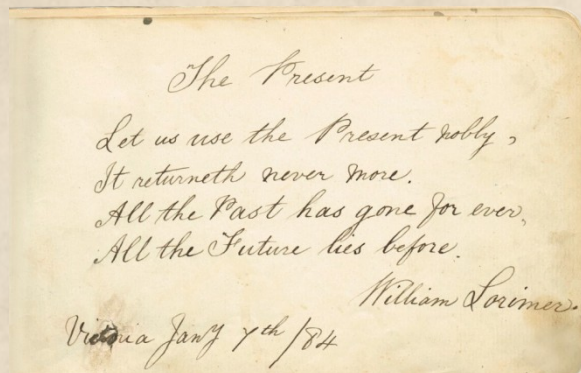 The Present
Let us use the Present nobly,
It returneth never more.
All the Past has gone for ever,
All the Future lies before.
William Lorimer.
Victoria Jany 7th/84